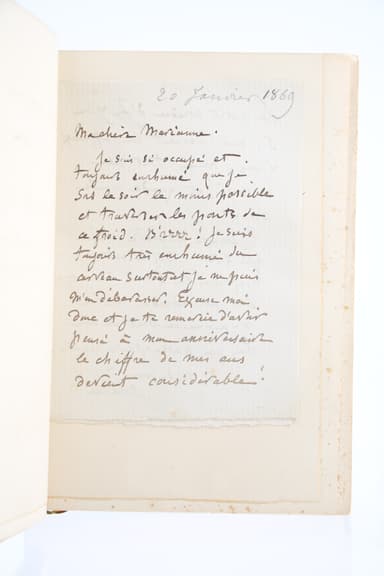 20 Janvier 1869
Ma chère Marianne.
Je suis si occupé et
toujours enrhumé que je
sors le soir le moins possible
et traverser les ponts de
ce froid. Brrrr! Je suis
toujours très enrhumé du
cerveau surtout et je ne puis
m'en débarrasser. Excuse moi
donc et je te remercie d'avoir
pensé à mon anniversaire
le chiffre de mes ans
devient considérable!